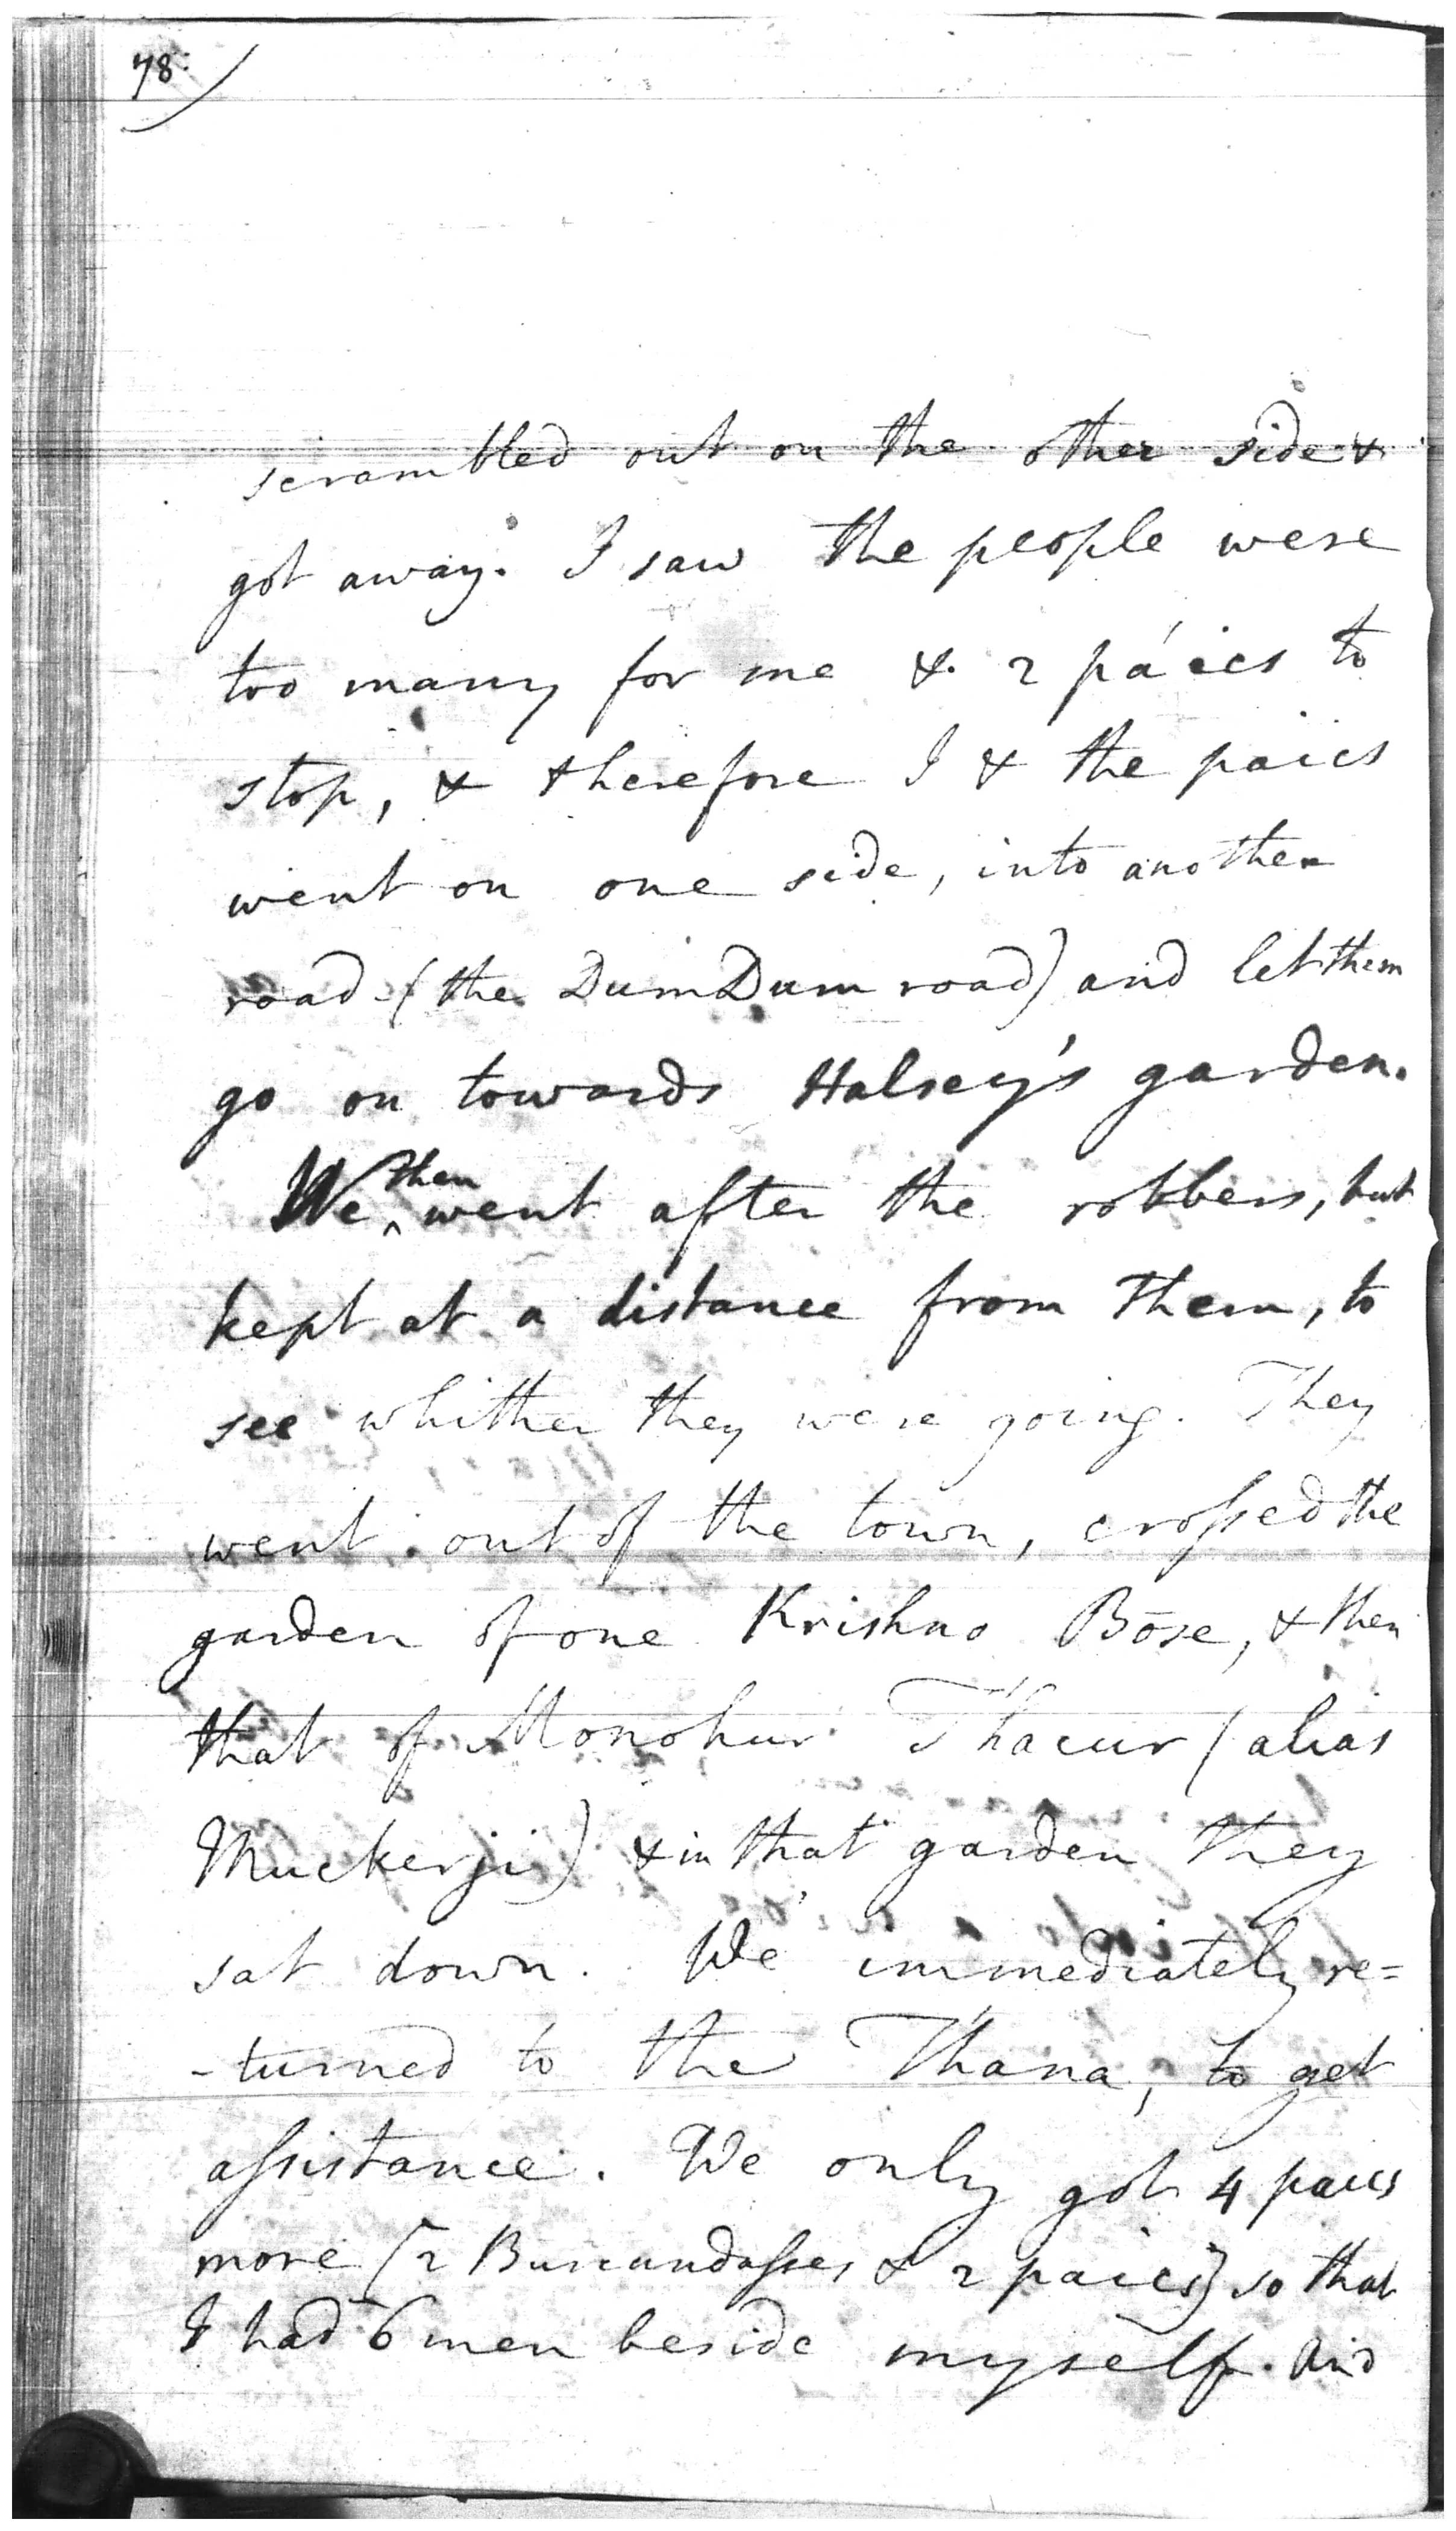 78.
scrambled out on the other side &
got away. I saw the people were
too many for me & 2 páics to
stop, & therefore I & the paics
went on one side, into another
road (the DumDum road) and let them
go on towards Halsey's garden.
We then went after the robbers, but
kept at a distance from them, to
see whither they were going. They
went out of the town, crossed the
garden of one Krishno Bōse, & then
that of Monohur Thacur (alias
Muckerji) & in that garden they
sat down. We immediately re=
-turned to the Thana, to get
assistance. We only got 4 paics
more (2 Burcundasses & 2 paics) so that
I had 6 men beside myself. And